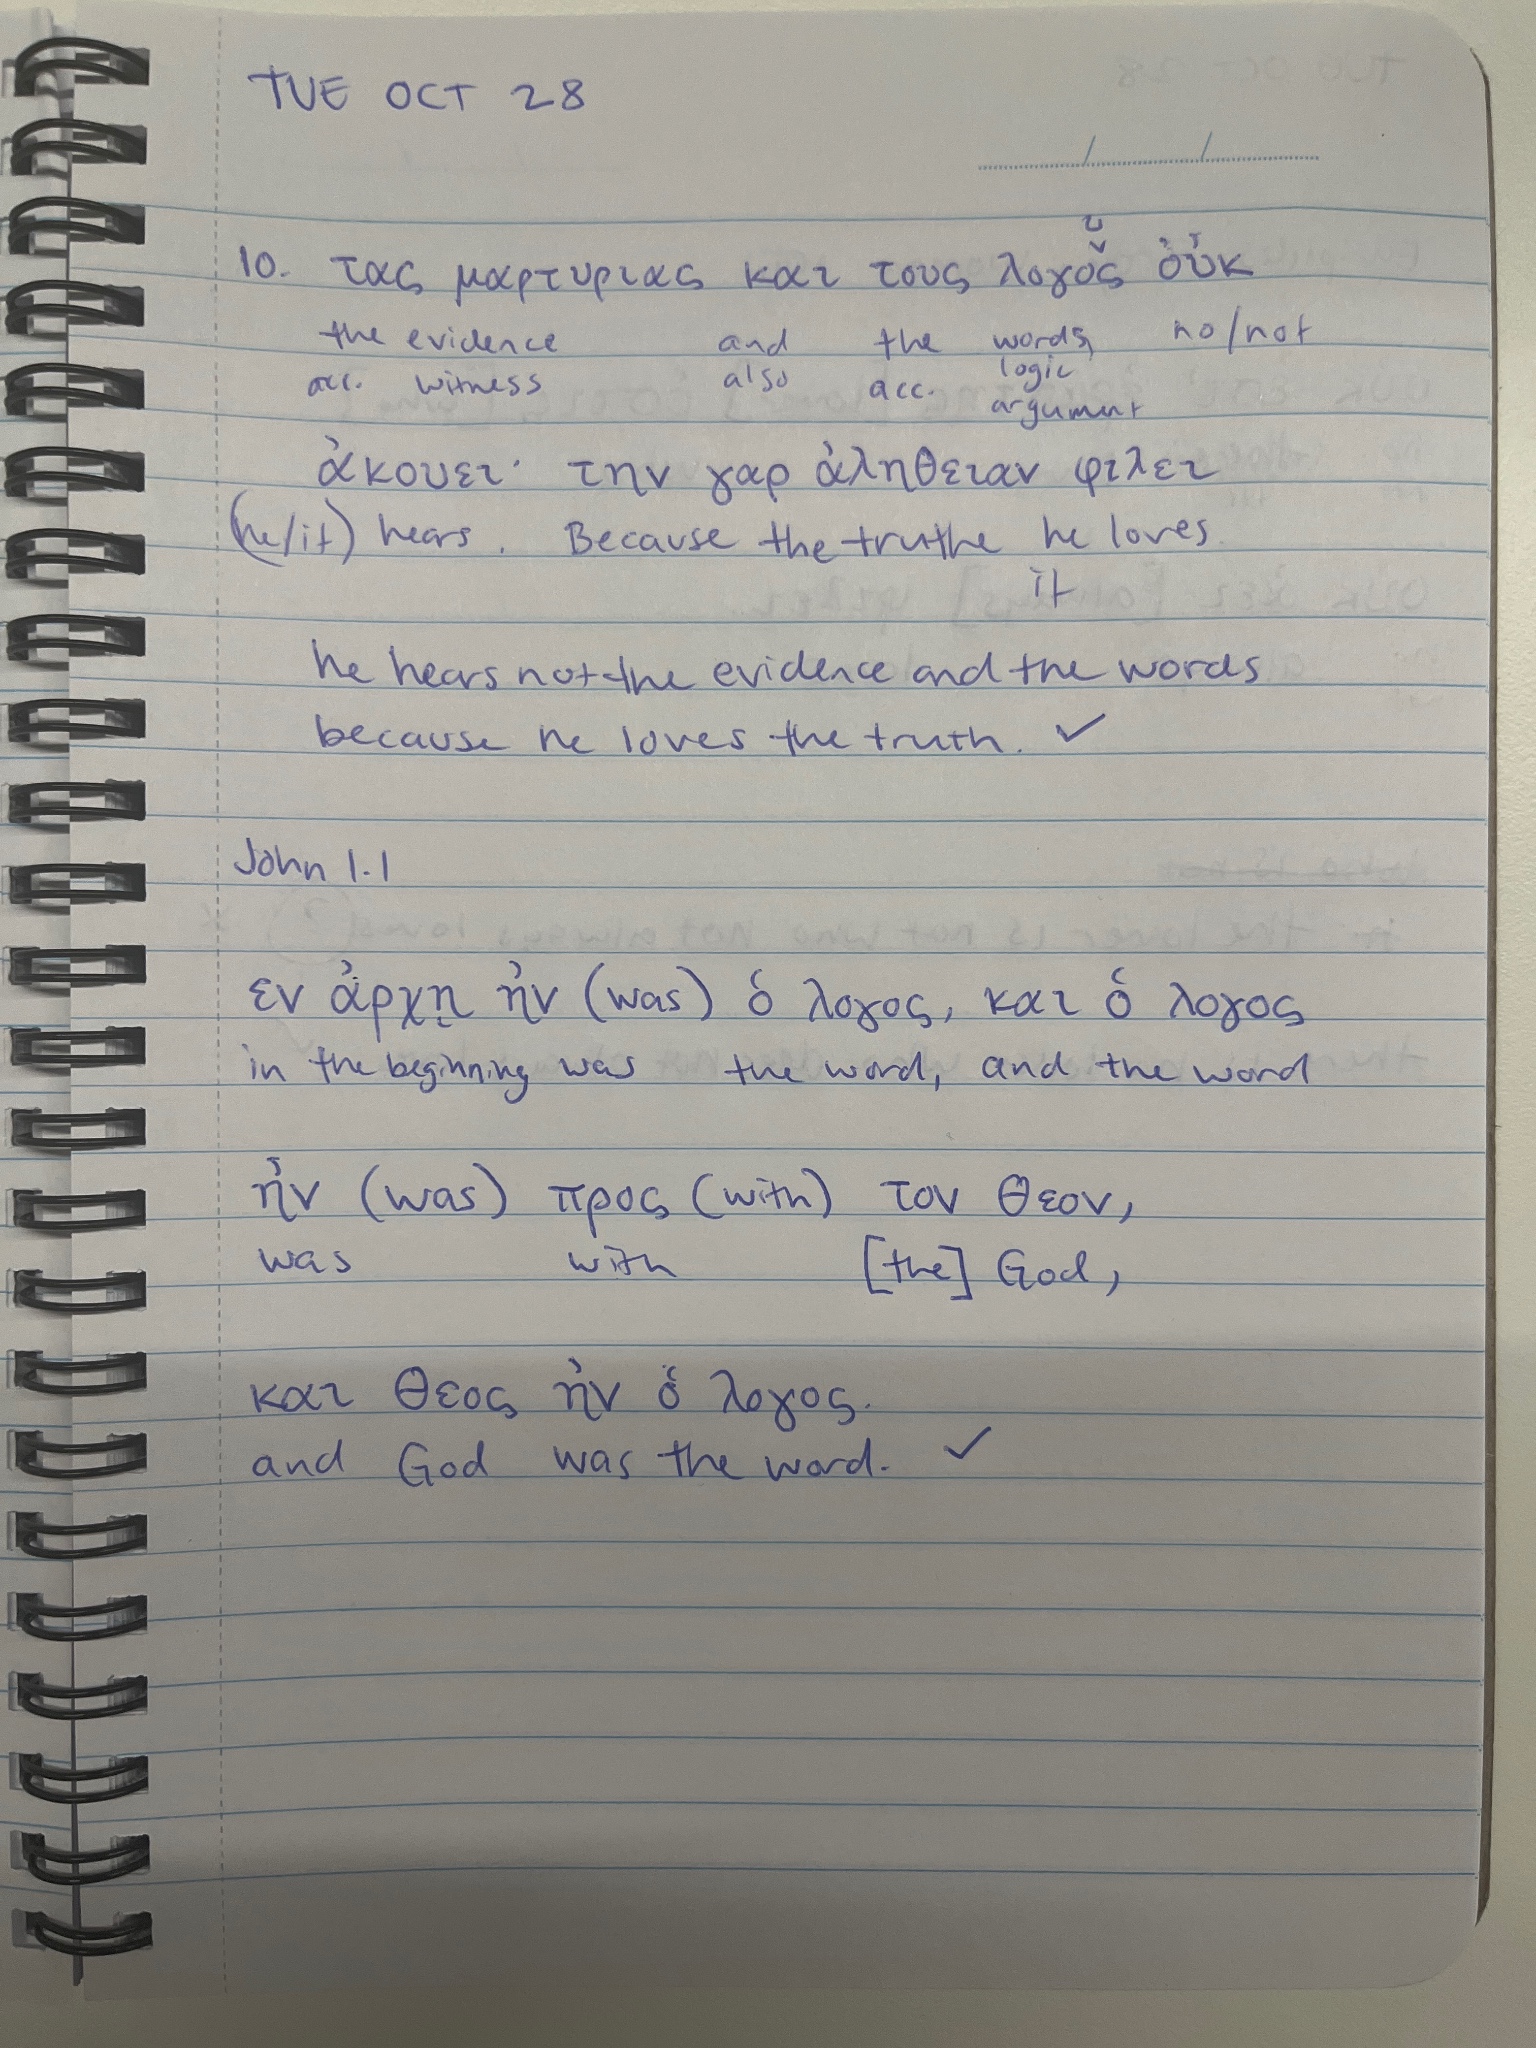 TUE OCT 28
10. τας μαρτυριας και τους λογοὓς οὐκ
the evidence and the words, no/not
acc. witness also acc. logic
argument
ἀκουει· την γαρ ἀληθειαν φιλει
(he/it) hears. Because the truthe he loves
it
he hears not the evidence and the words
because he loves the truth. ✓
John 1.1
εν ἀρχῃ ἠν (was) ὁ λογος, και ὁ λογος
in the beginning was the word, and the word
ἠν (was) προς (with) τον Θεον,
was with [the] God,
και Θεος ἠν ὁ λογος.
and God was the word. ✓